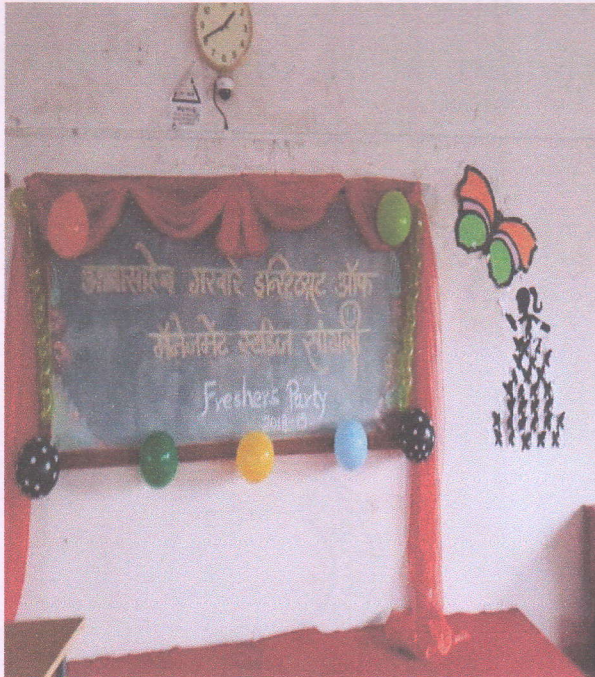 आबासाहेब गरवारे इन्स्टिट्यूट ऑफ
मॅनेजमेंट स्टडीज सांगली
Freshers Party